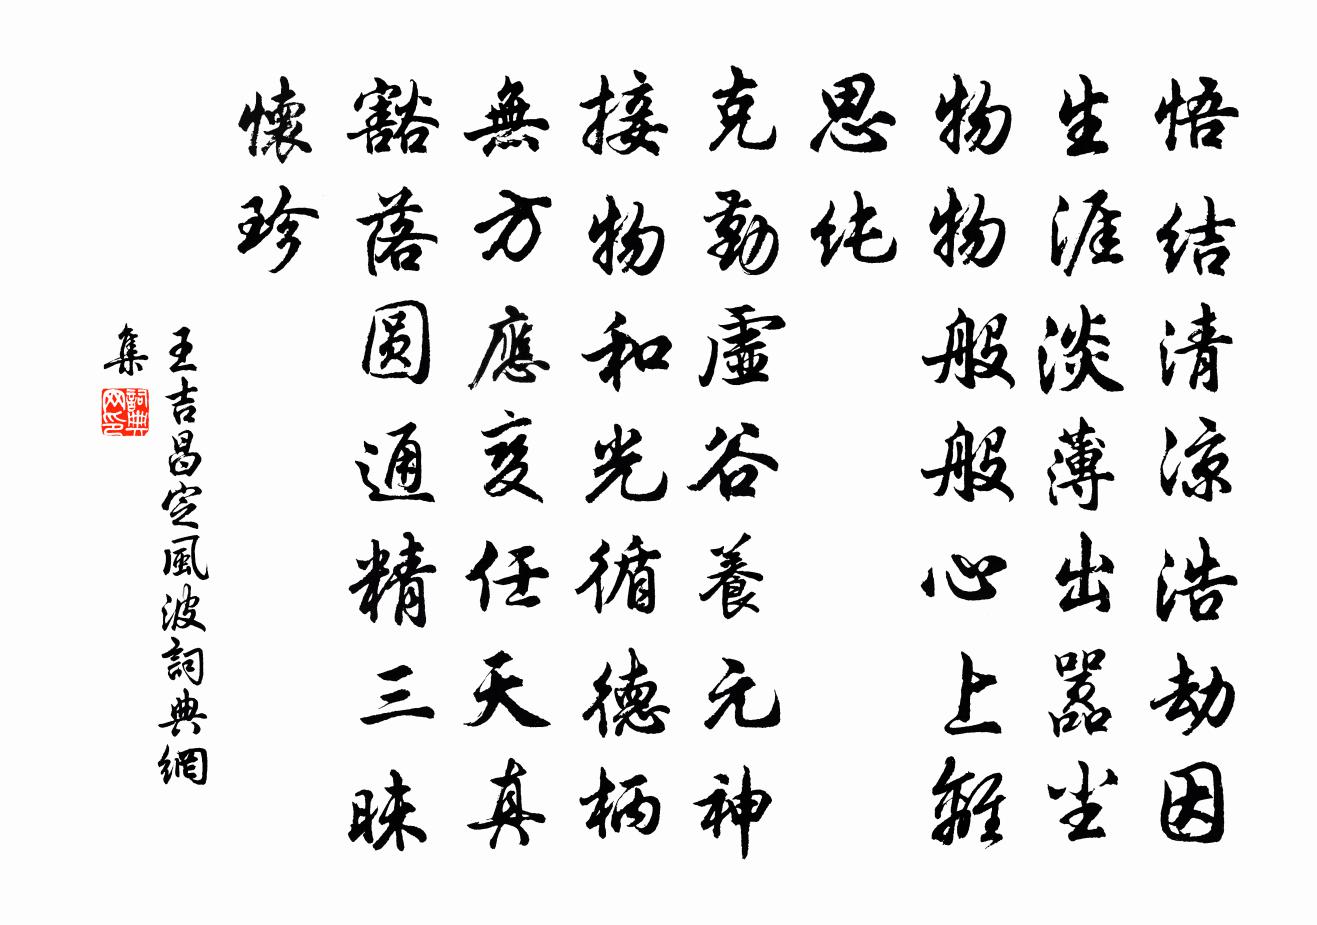 悟结清凉浩劫因
生涯淡薄出嚣尘
物物般般心上离
思纯
克勤虚谷養元神
接物和光循德柄
無方應变任天真
豁落圆通精三昧
懷珍
王吉昌定風波詞典網
集
詞典网印